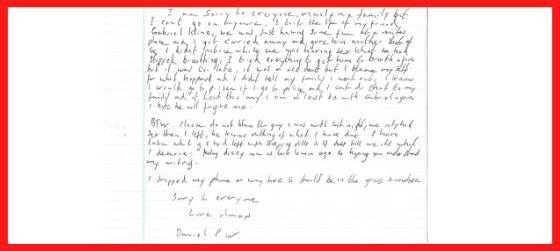 I am sorry to everyone, mainly my family but
I can't go on anymore, I took the life of my friend
Gabriel Kline, we was just having some fun at a mates
place and I got carried away and gave him another shot of
G, I didn't notice while we was having sex that he had
stopped breathing, I tried everything to get him to breath again
but it was to late, it was an accident but I blame myself
for what happened and I didn't tell my family I went out, I know
I would go to prison if I go to police and I can't do that to my
family and at least this way I can at least be with Gabriel again
I hope he will forgive me.
BTW. Please do not blame the guy I was with last night, we only had
sex then I left, he knows nothing of what I have done. I have
taken what g I had left with sleeping pills so if it does kill me it's what
I deserve. Feeling dizzy now as took 10 min ago so hoping you understand
my writing.
I dropped my phone on way here so should be in the grass somewhere
Sorry to everyone
Love always
Daniel P W